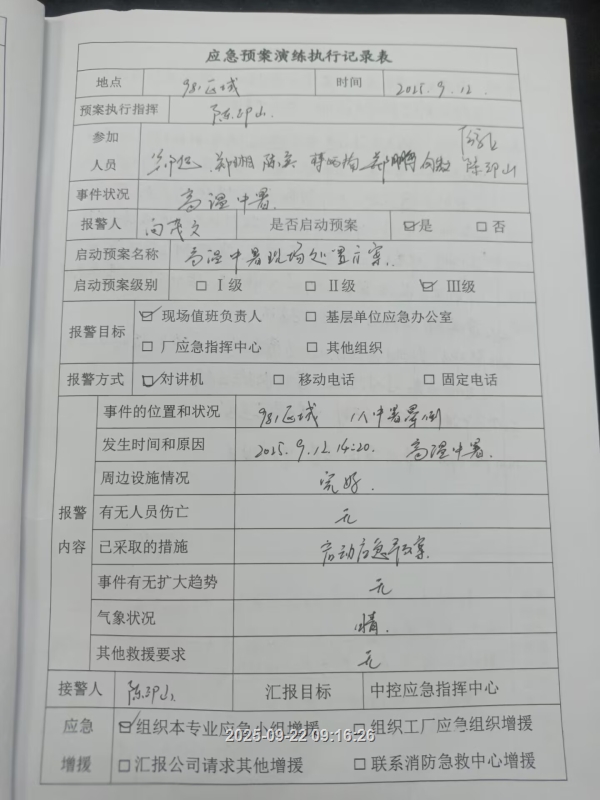 应急预案演练执行记录表
地点 981区域 时间 2025.9.12.
预案执行指挥 陈卫山.
参加
人员 郑旭 陈兵 郑鹏 陈卫山
事件状况 高温中暑.
报警人 向茂文 是否启动预案 ☑是 □否
启动预案名称 高温中暑现场处置方案.
启动预案级别 □Ⅰ级 □Ⅱ级 ☑Ⅲ级
报警目标 ☑现场值班负责人 □基层单位应急办公室
□厂应急指挥中心 □其他组织
报警方式 ☑对讲机 □移动电话 □固定电话
报警内容
事件的位置和状况 981区域 1人中暑晕倒
发生时间和原因 2025.9.12 14:20. 高温中暑.
周边设施情况 完好.
有无人员伤亡 无
已采取的措施 启动应急预案.
事件有无扩大趋势 无
气象状况 晴.
其他救援要求 无
接警人 陈卫山 汇报目标 中控应急指挥中心
应急 ☑组织本专业应急小组增援 □组织工厂应急组织增援
2025-09-22 09:16:26
增援 □汇报公司请求其他增援 □联系消防急救中心增援